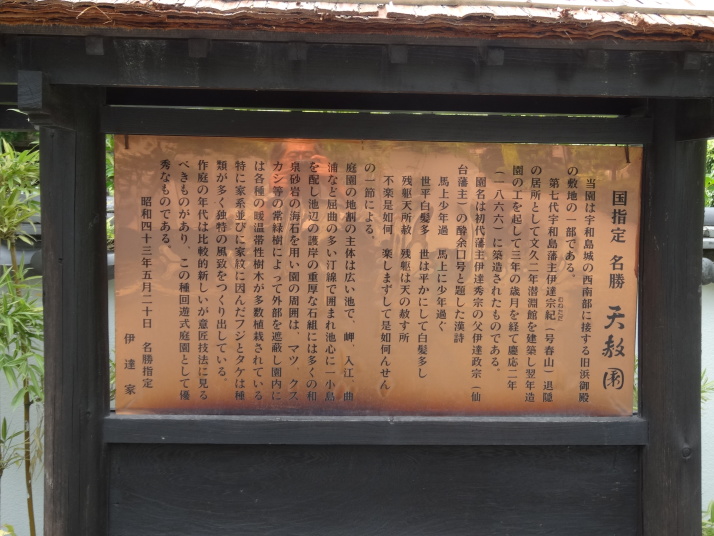 国指定 名勝 天赦園
当園は宇和島城の西南部に接する旧浜御殿
の敷地の一部である。
第七代宇和島藩主伊達宗紀（号春山）退隠
の居所として文久二年潜淵館を建築し翌年造
園の工を起して三年の歳月を経て慶応二年
（一八六六）に築造されたものである。
園名は初代藩主伊達秀宗の父伊達政宗（仙
台藩主）の酔余口号と題した漢詩
馬上少年過 馬上に少年過ぐ
世平白髪多 世は平かにして白髪多し
残躯天所赦 残躯は天の赦す所
不楽是如何 楽しまずして是如何んせん
の一節による。
庭園の地割の主体は広い池で、岬、入江、曲
浦など屈曲の多い汀線で囲まれ池心に一小島
を配し池辺の護岸の重厚な石組には多くの和
泉砂岩の海石を用い園の周囲は、マツ、クス、
カシ等の常緑樹によって外部を遮蔽し園内に
は各種の暖温帯性樹木が多数植栽されている。
特に家系並びに家紋に因んだフジとタケは種
類が多く独特の風致をつくり出している。
作庭の年代は比較的新しいが意匠技法に見る
べきものがあり、この種回遊式庭園として優
秀なものである。
昭和四十三年五月二十日 名勝指定
伊達家